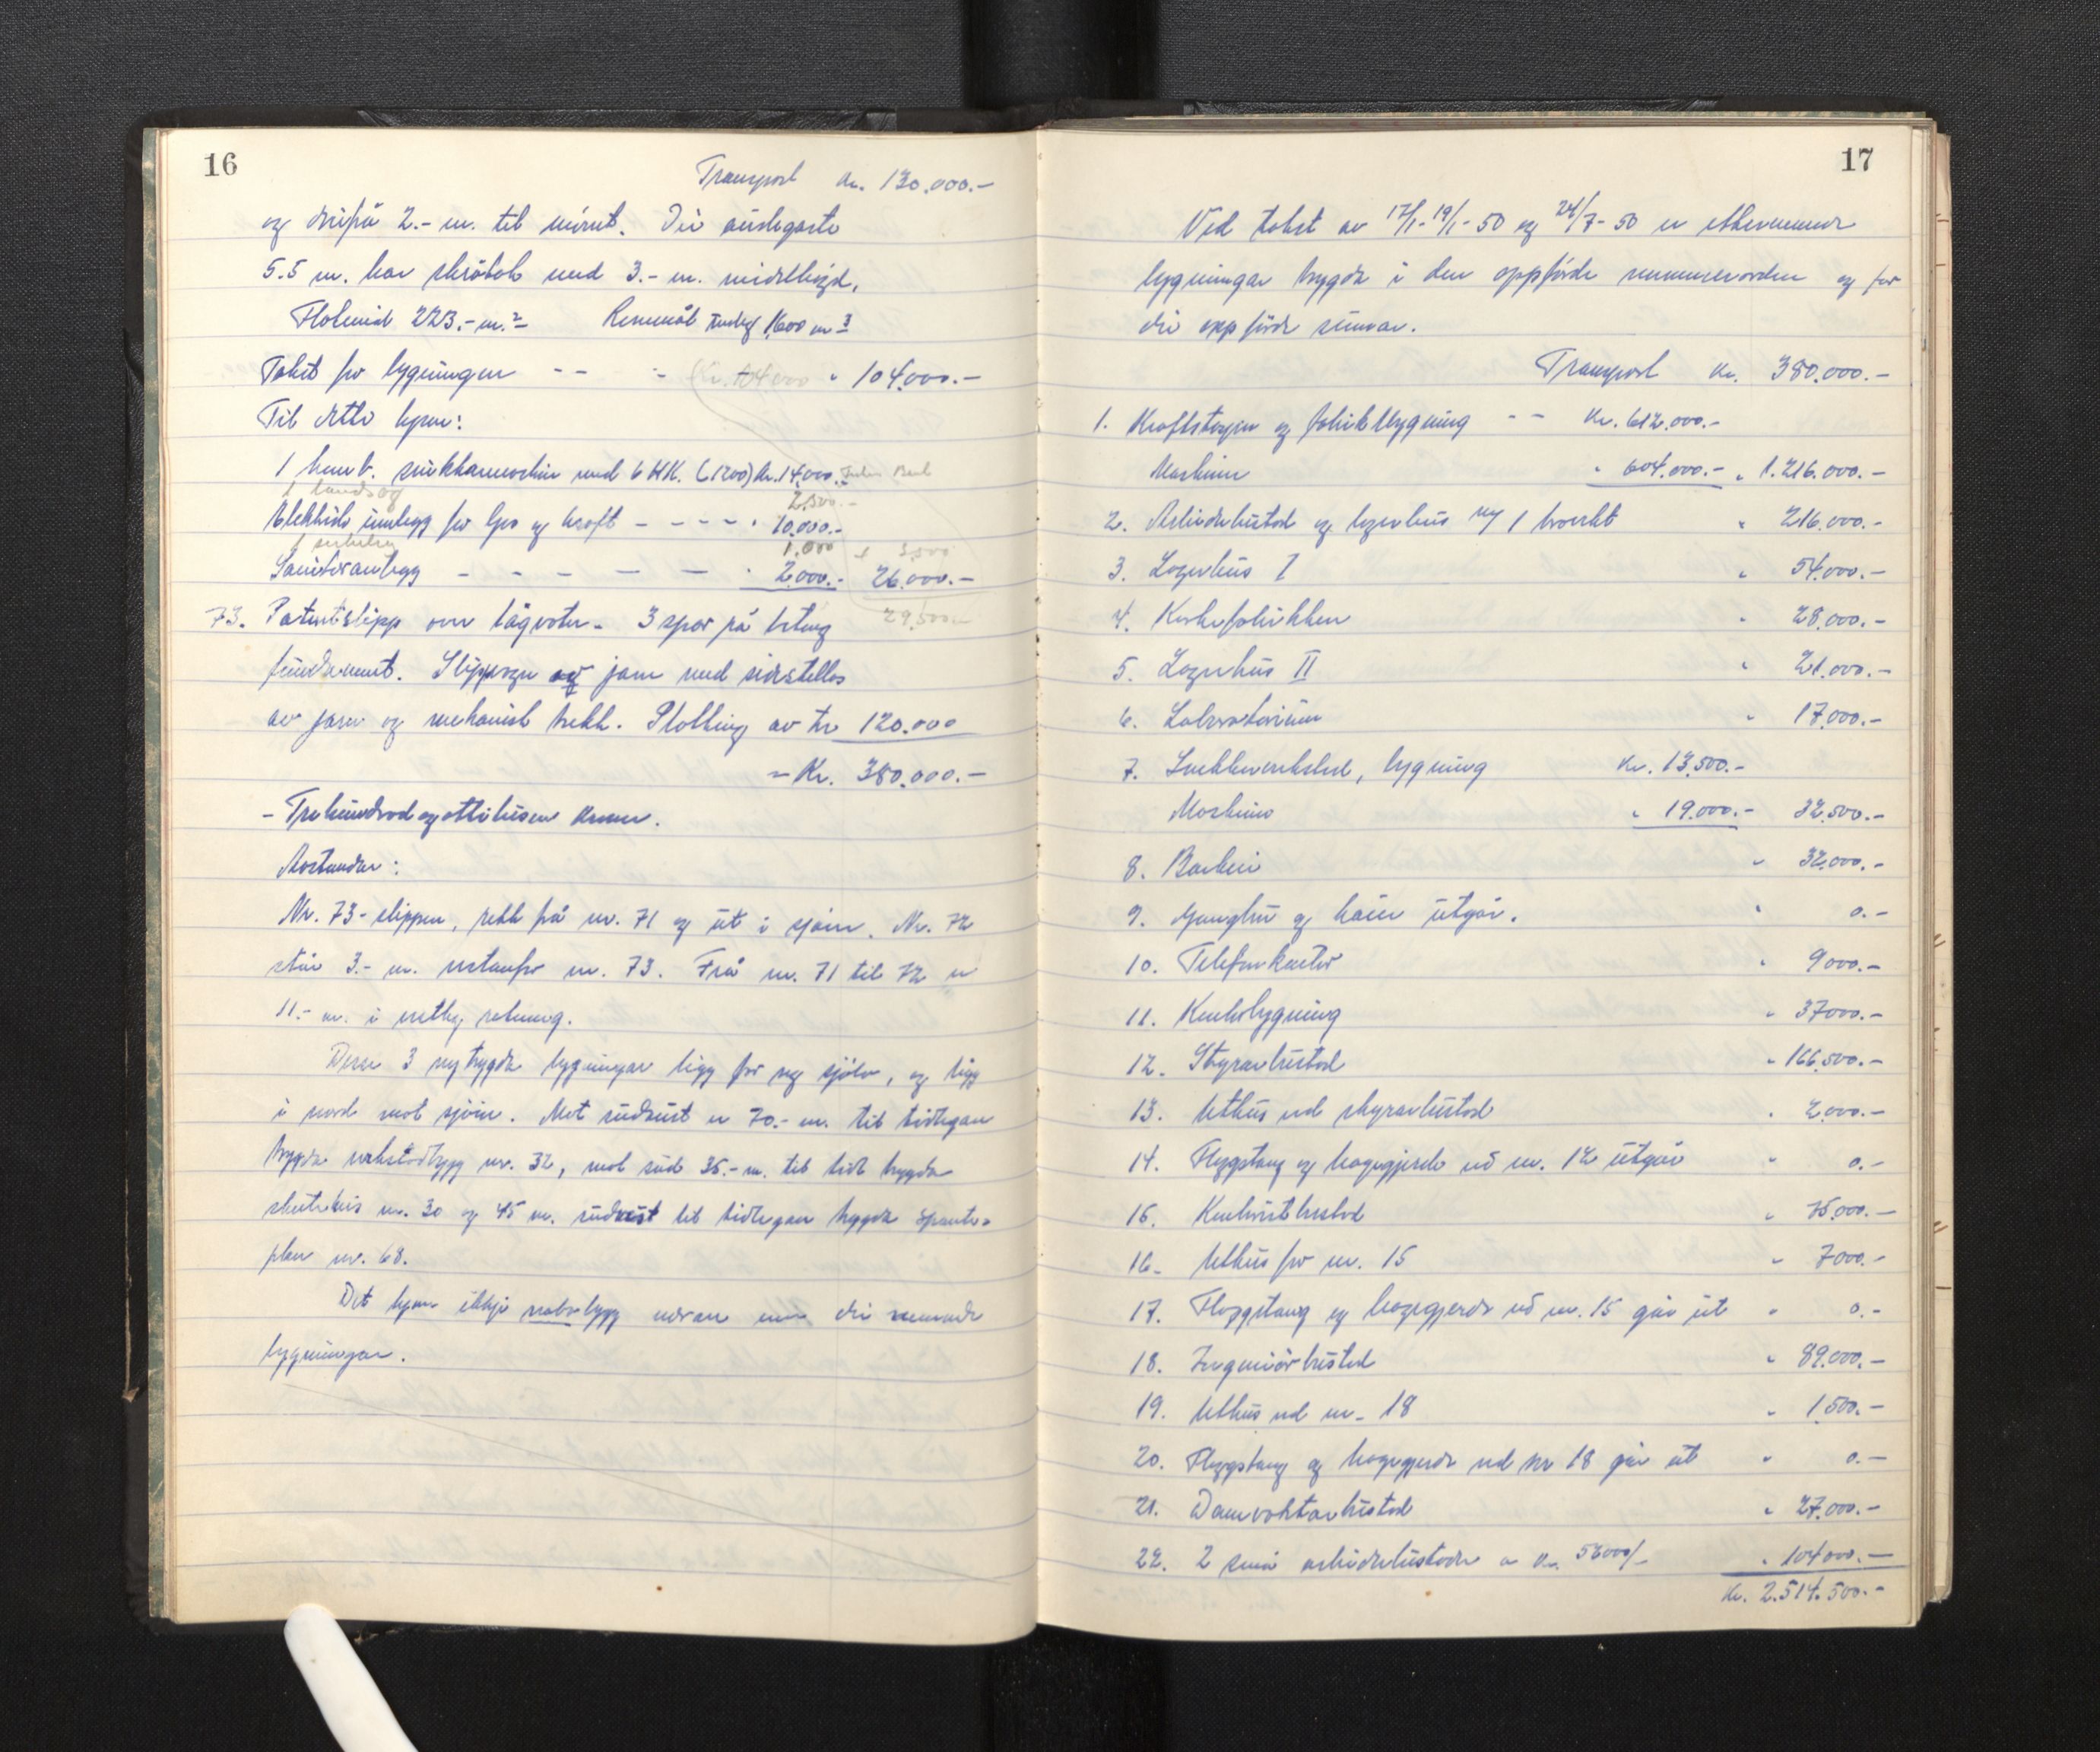 16
Transport kr. 130.000.-
og derifrå 2.- m. til mönet. Dei austegaste
5.5 m. har skråtak med 3.- m. midelhögd.
Flatemål 223.- m.² Romemål umlag 1600 m³
Takst for bygningen - - - (Kr. 104000 " 104.000.-
Til dette kjem:
1 komb. snikkarmaskin med 6 HK. (1200) kr. 14.000.-
1 bandsag 2.500.-
Elektrisk innlegg for ljos og kraft - - - - " 10.000.-
1.000 + 3.500
Sanitæranlegg - - - - - - " 2.000.- 26.000.-
29.500
73. Patentslipp over lågvatn - 3 spor på betong
fundament. Slippvogn av jarn med sidestellas
av jarn og mekanisk trekk. Påkosting av kr 120.000
- Kr. 380.000.-
- Trehundradogottitusen kroner.
Avstandar:
Nr. 73 - slippen, rekk frå nr. 71 og ut i sjöen. Nr. 72
står 3.- m. vestanfor nr. 73. Frå nr. 71 til 72 er
11.- m. i vestleg retning.
Desse 3 nybygde bygningar ligg for seg sjölv, og ligg
i nord mot sjöen. Mot sudaust er 70.- m. til tidlegare
bygde verkstadbygg nr. 32, mot sud 35.- m. til tidl. bygde
skutehus nr. 30 og 45 m. sudvest til tidlegare bygde
plan nr. 68.
Det kjem ikkje nabobygg nærare enn dei nemnde
bygningar.
17
Ved takst av 17/1-19/1-50 og 24/7-50 er etternemnde
bygningar bygde i den oppförde nummerorden og for
dei oppförde summar.
Transport kr. 380.000.-
1. Kraftstasjon og fabrikkbygning - - Kr. 612.000.-
Maskiner " 604.000.- " 1.216.000.-
2. Arbeidarbustad og lagerhus ny 1 kvarst " 216.000.-
3. Lagerhus I " 54.000.-
4. Korkefabrikken " 28.000.-
5. Lagerhus II " 21.000.-
6. Laboratorium " 17.000.-
7. Snekkerverkstad, bygning Kr. 13.500.-
Maskiner " 19.000.- 32.500.-
8. Barkeri " 32.000.-
9. Gangbru og kaien utgår. " 0.-
10. Telefonkontor " 9000.-
11. Kontorbygning " 37000.-
12. Styrarbustad " 166.500.-
13. Uthus ved styrarbustad " 2.000.-
14. Flaggstang og hagegjerde ved nr. 12 utgår " 0.-
15. Kontoristbustad " 75.000.-
16. Uthus for nr. 15 " 7000.-
17. Flaggstang og hagegjerde ved nr. 15 går ut " 0.-
18. Ingeniörbustad " 89.000.-
19. Uthus ved nr. 18 " 1.500.-
20. Flaggstang og hagegjerde ved nr 18 går ut " 0.-
21. Damvaktarbustad " 27.000.-
22. 2 små arbeidarbustader a kr. 52000/- " 104000.-
Kr. 2.514.500.-